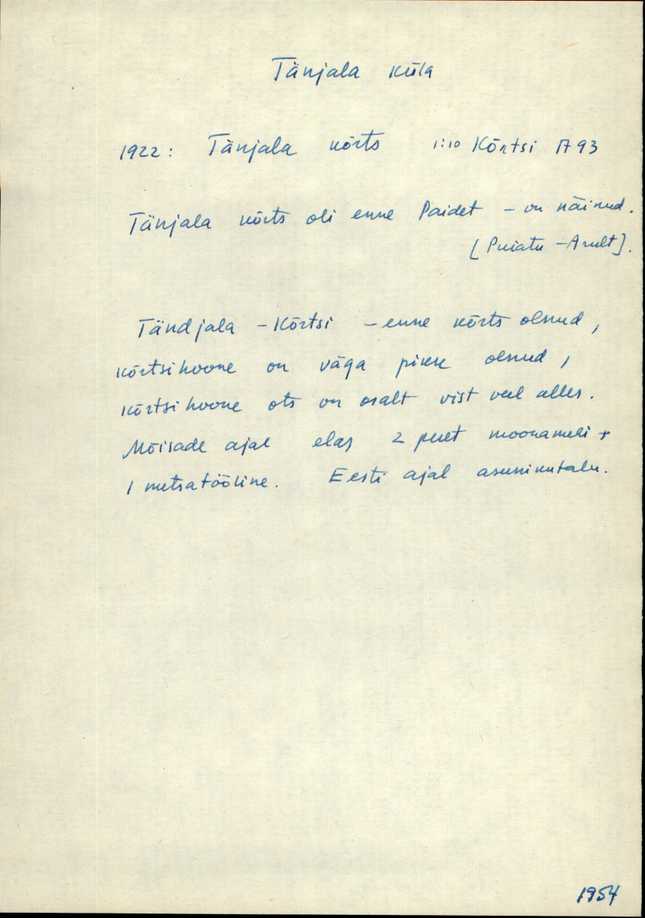 Tänjala küla
1922: Tänjala kõrts 1:10 Kõrtsi A 93
Tänjala kõrts oli enne Paidet – on näinud.
[Puiatu – Arult].
Tändjala – Kõrtsi – enne kõrts olnud,
kõrtsihoone on väga pikk olnud,
kõrtsihoone ots on osalt vist veel alles.
Mõisade ajal elas 2 peret moonamehi +
1 metsatööline. Eesti ajal asunikutalu.
1954